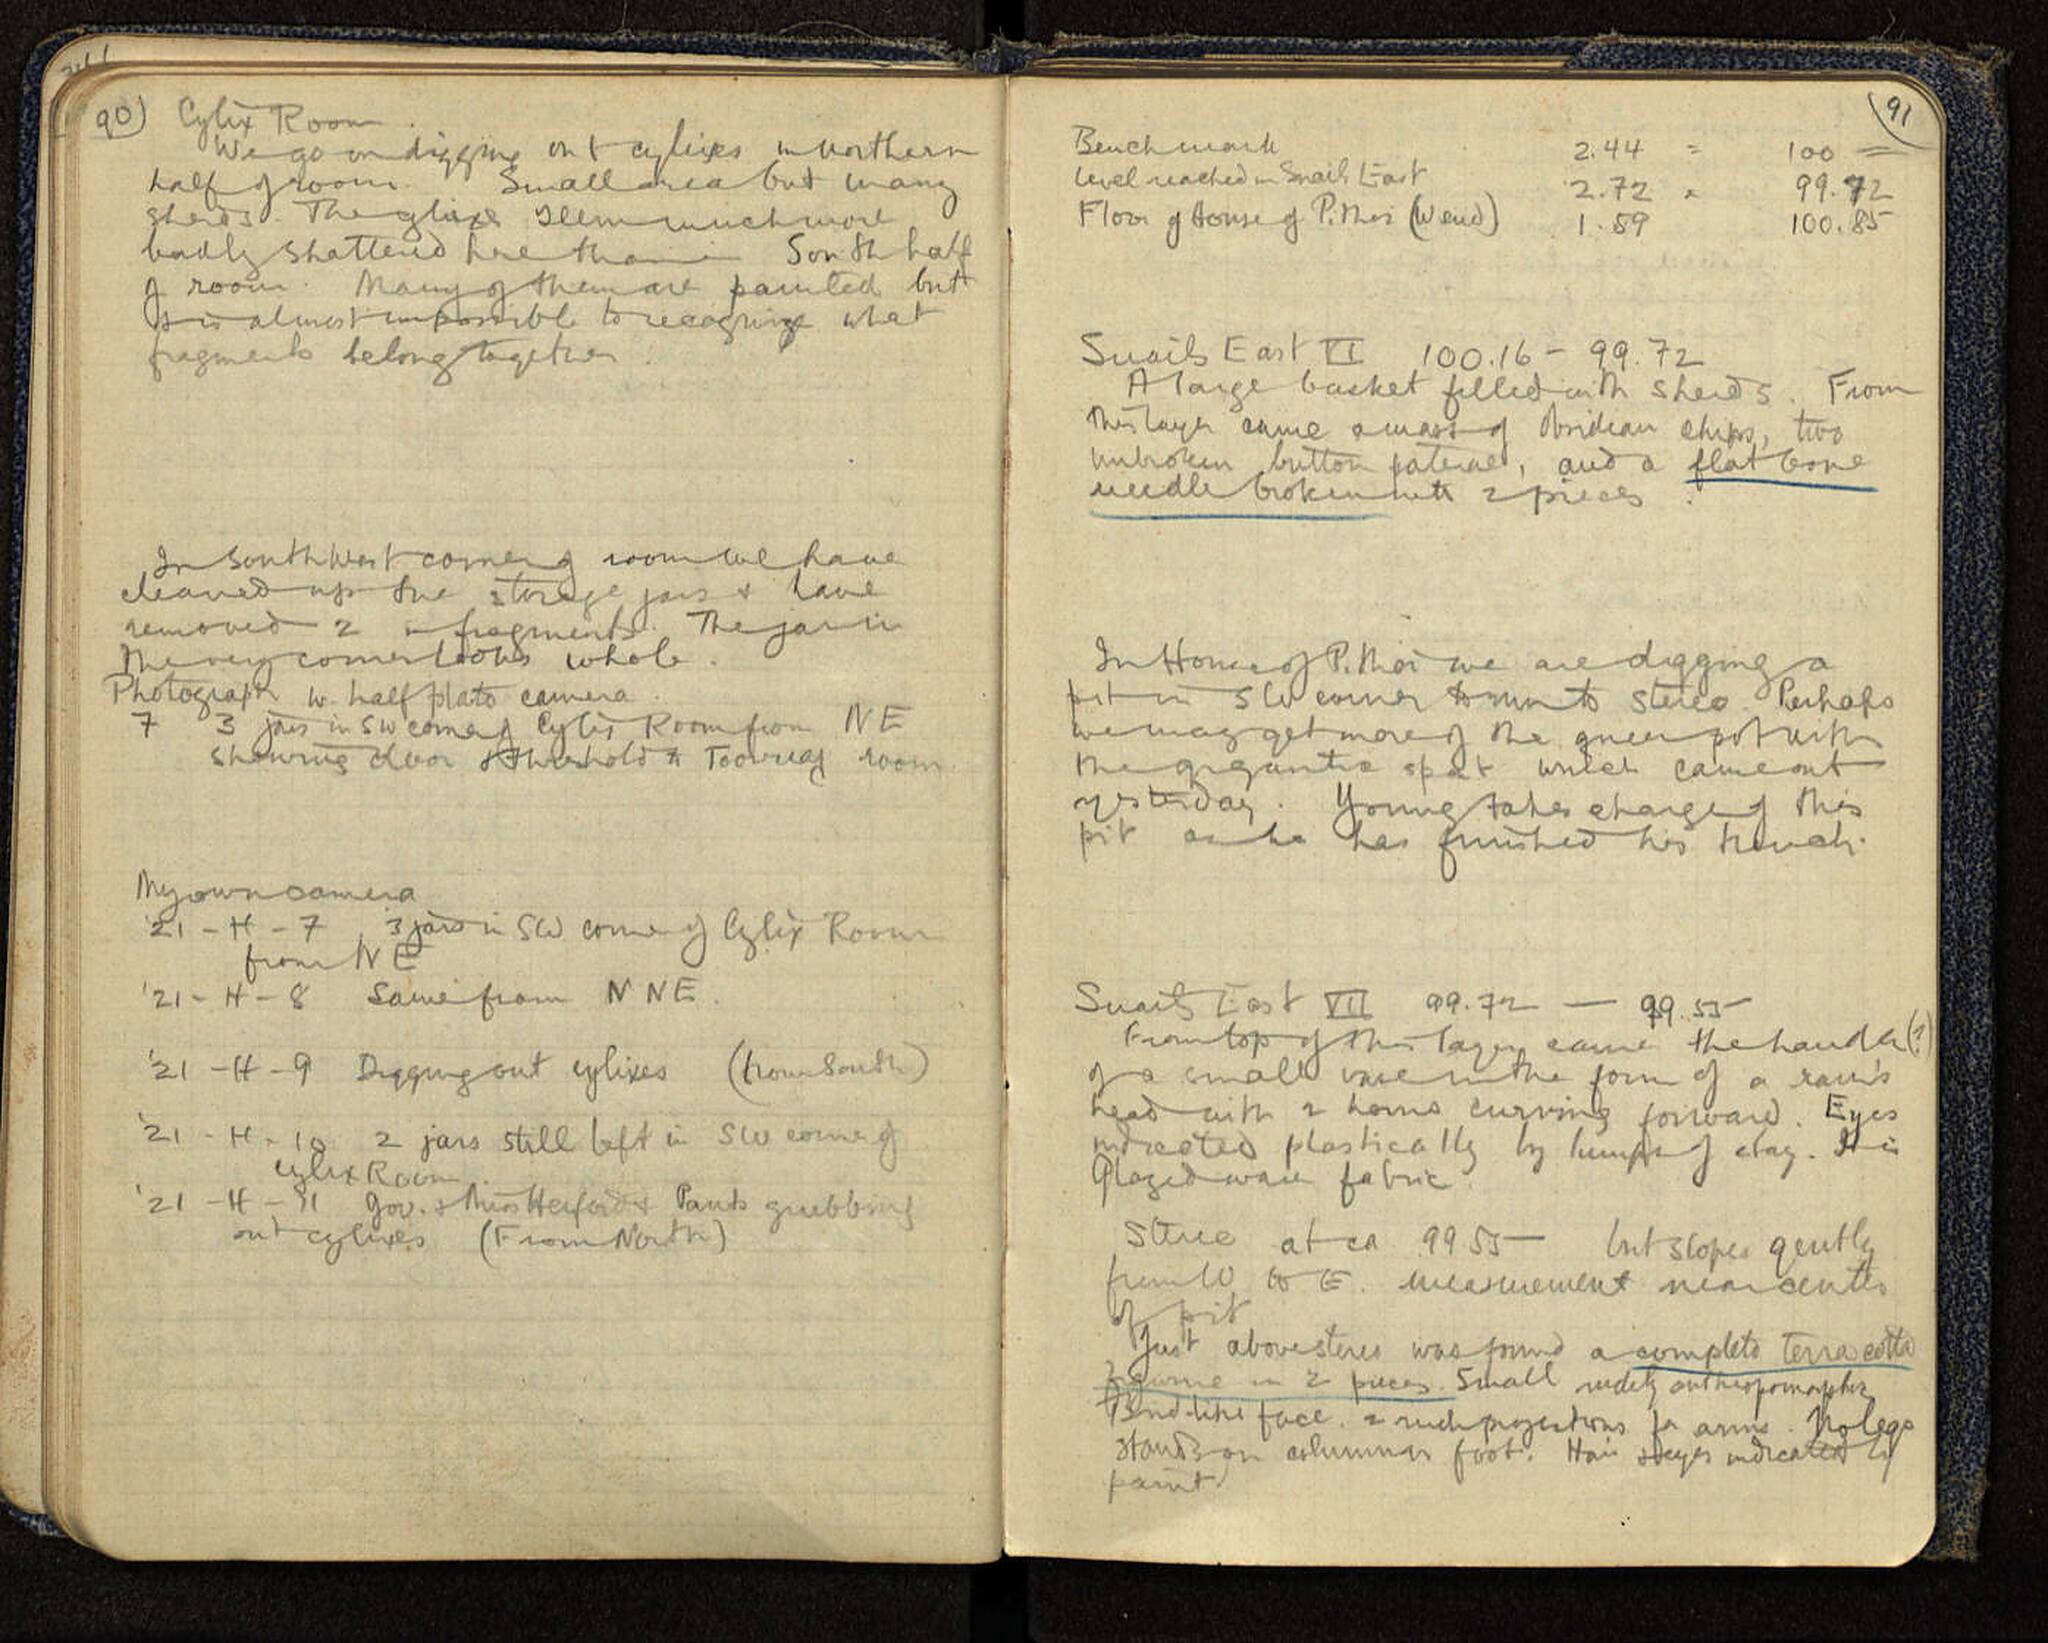 90
Cylix Room.
We go on digging out cylixes in Northern
half of room. Small area but many
sherds. The cylixes seem much more
badly shattered here than in South half
of room. Many of them are painted but
it is almost impossible to recognize what
fragments belong together.
In Southwest corner of room we have
cleaned up the storage jars & have
removed 2 in fragments. The jar in
the very corner looks whole.
Photograph w. half plate camera.
7 3 jars in SW corner of Cylix Room from NE
showing door & threshold to room
My own camera
'21 - H - 7 3 jars in SW corner of Cylix Room
from NE
'21 - H - 8 Same from NNE.
'21 - H - 9 Digging out cylixes (from South)
'21 - H - 10 2 jars still left in SW corner of
Cylix Room.
'21 - H - 11 Gov. & Miss Herford & Pants grubbing
out cylixes (From North)
91
Bench mark 2.44 = 100
Level reached in Snails East 2.72 = 99.72
Floor of House of Pithoi (W end) 1.59 100.85
Snails East VI 100.16 - 99.72
A large basket filled with sherds. From
this layer came a mass of obsidian chips, two
unbroken button paterae, and a flat bone
needle broken into 2 pieces.
In House of Pithoi we are digging a
pit in SW corner down to stereo. Perhaps
we may get more of the queer pot with
the gigantic spout which came out
yesterday. Young takes charge of this
pit as he has finished his trench.
Snails East VII 99.72 — 99.55
From top of this layer came the handle (?)
of a small vase in the form of a ram's
head with 2 horns curving forward. Eyes
indicated plastically by lumps of clay. It is
Glazed ware fabric.
Stereo at ca 99 55 — but slopes gently
from W to E. measurement near center
of pit
Just above stereo was found a complete terracotta
figurine in 2 pieces. Small rudely anthropomorphic
Bird-like face. 2 rude projections for arms. No legs
stands on columnar foot. Hair & eyes indicated by
paint.